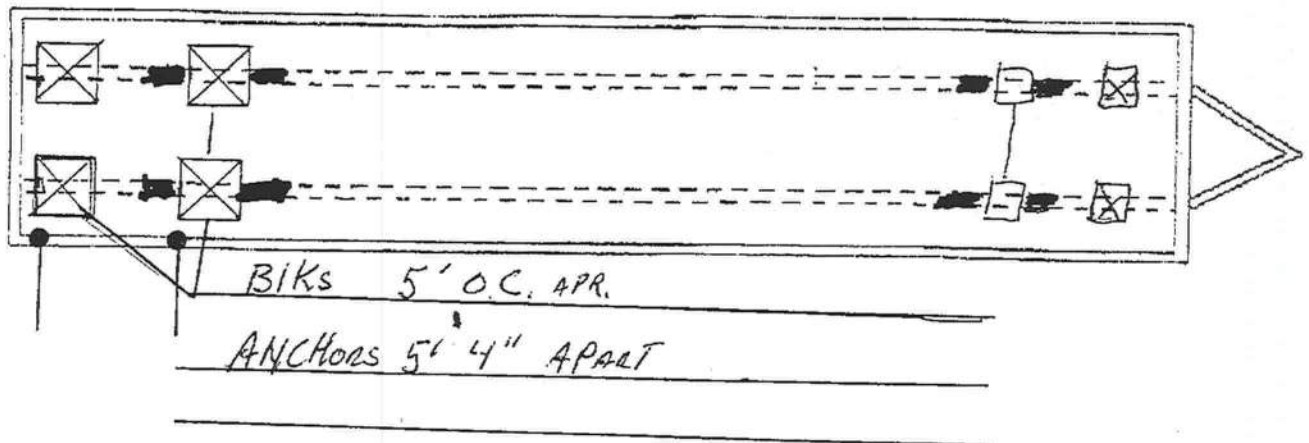 BlKs 5' O.C. APR.
ANCHORS 5' 4" APART